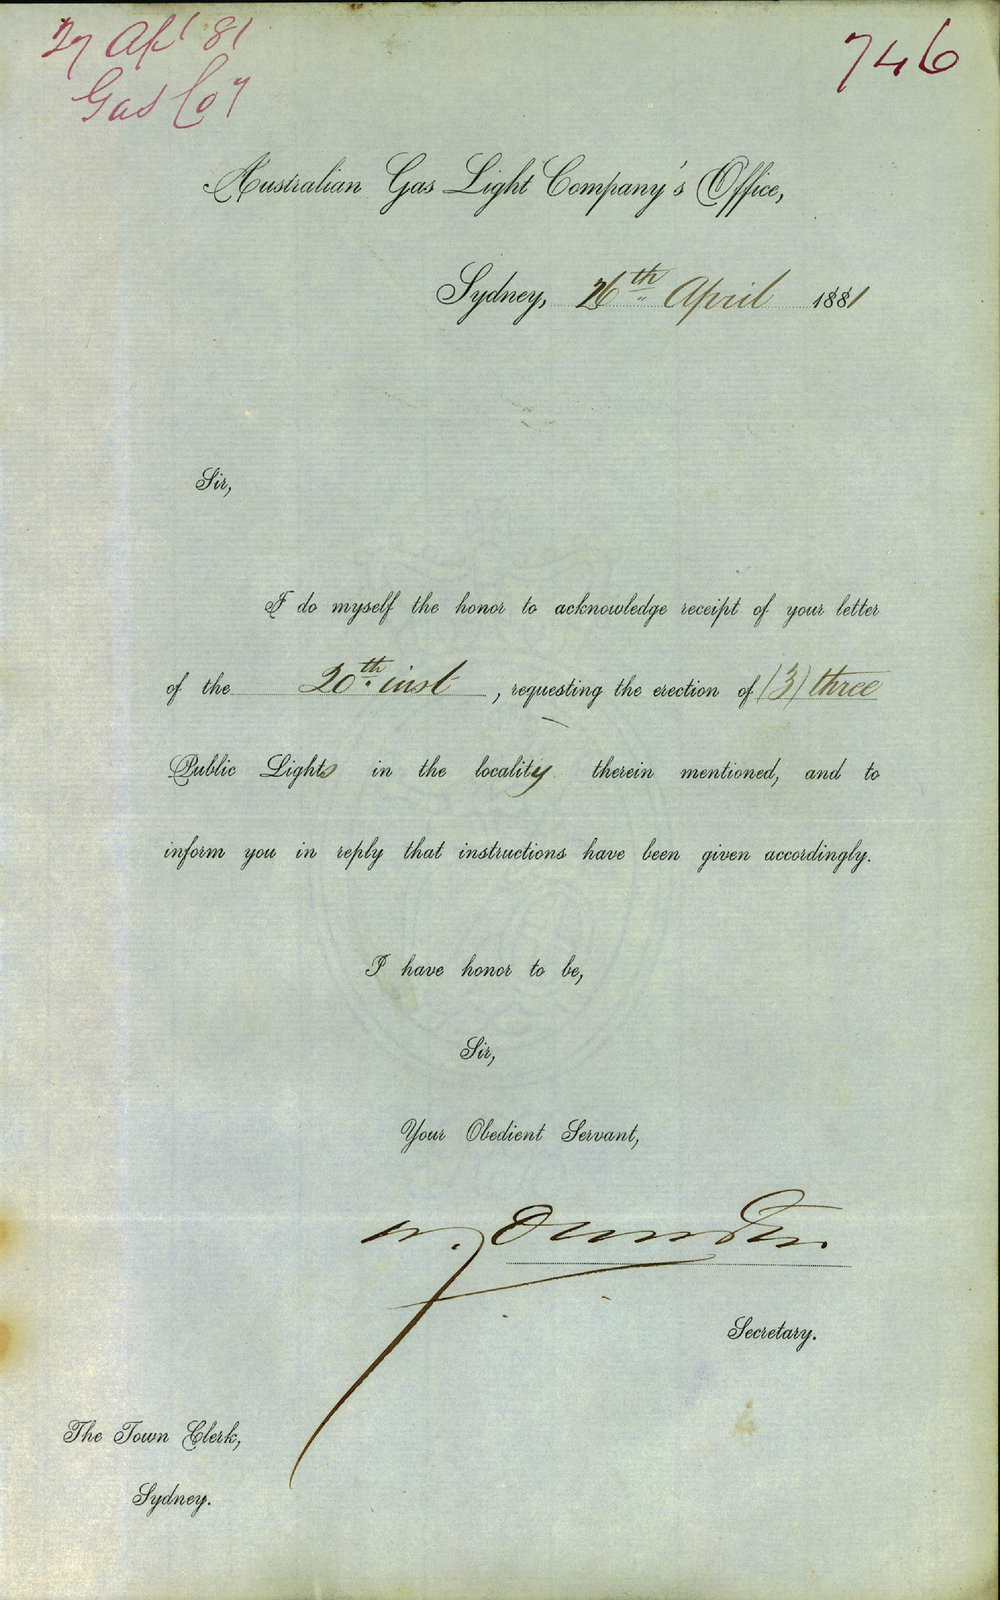 27 Apl 81
Gas Coy
746
Australian Gas Light Company's Office,
Sydney, 26th April 1881
Sir,
I do myself the honor to acknowledge receipt of your letter
of the 20th inst, requesting the erection of (3) three
Public Lights in the locality therein mentioned, and to
inform you in reply that instructions have been given accordingly.
I have honor to be,
Sir,
Your Obedient Servant,
Secretary.
The Town Clerk,
Sydney.